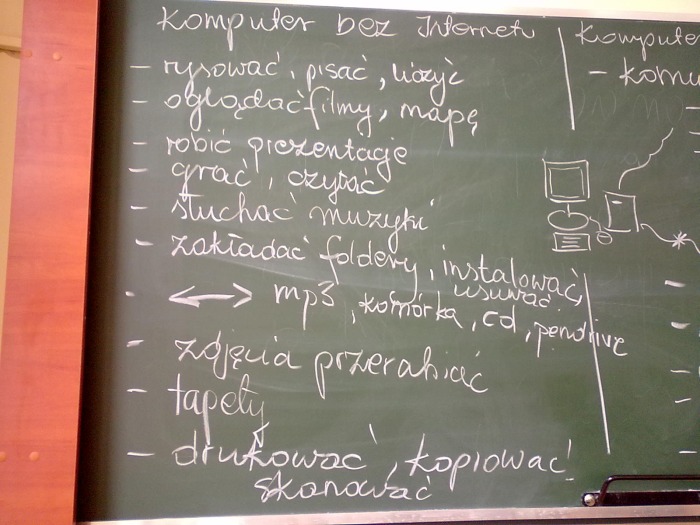 Komputer bez Internetu
- rysować, pisać, liczyć
- oglądać filmy, mapę
- robić prezentacje
- grać, czytać
- słuchać muzyki
- zakładać foldery, instalować,
usuwać
- <--> mp3, komórka, cd, pendrive
- zdjęcia przerabiać
- tapety
- drukować, kopiować
skanować
Komputer
- komu